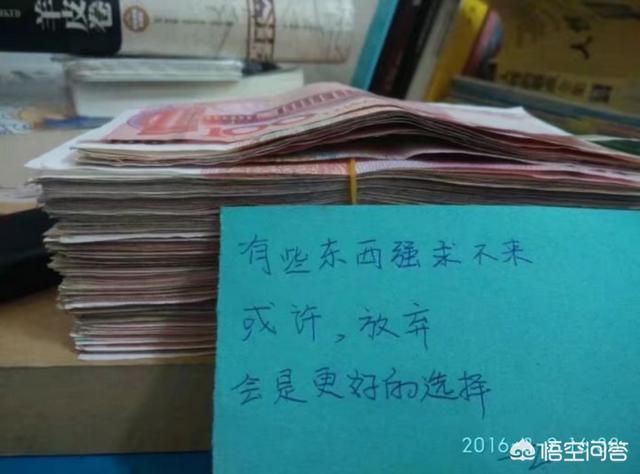 羊皮卷
有些东西强求不来
或许，放弃
会是更好的选择
悟空问答